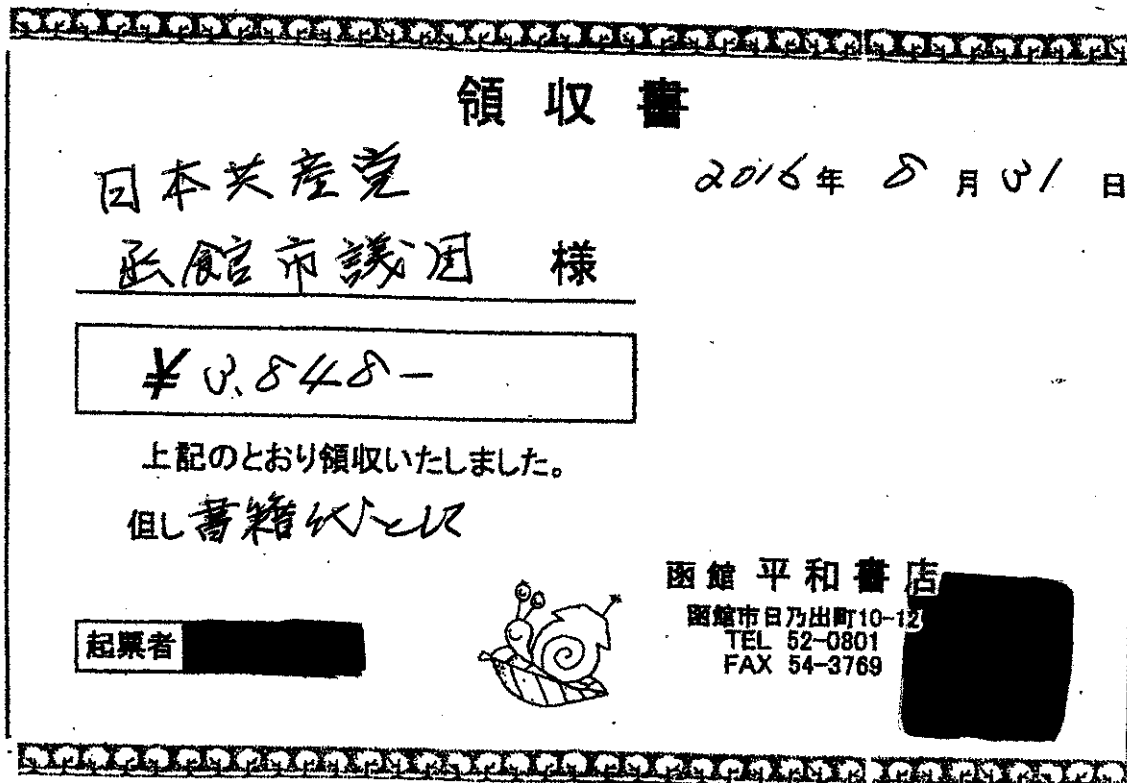 領収書
日本共産党
2016年 8月31日
函館市議団 様
¥3.848-
上記のとおり領収いたしました。
但し 書籍代として
函館 平和書店
函館市日乃出町10-12
TEL 52-0801
FAX 54-3769
起票者